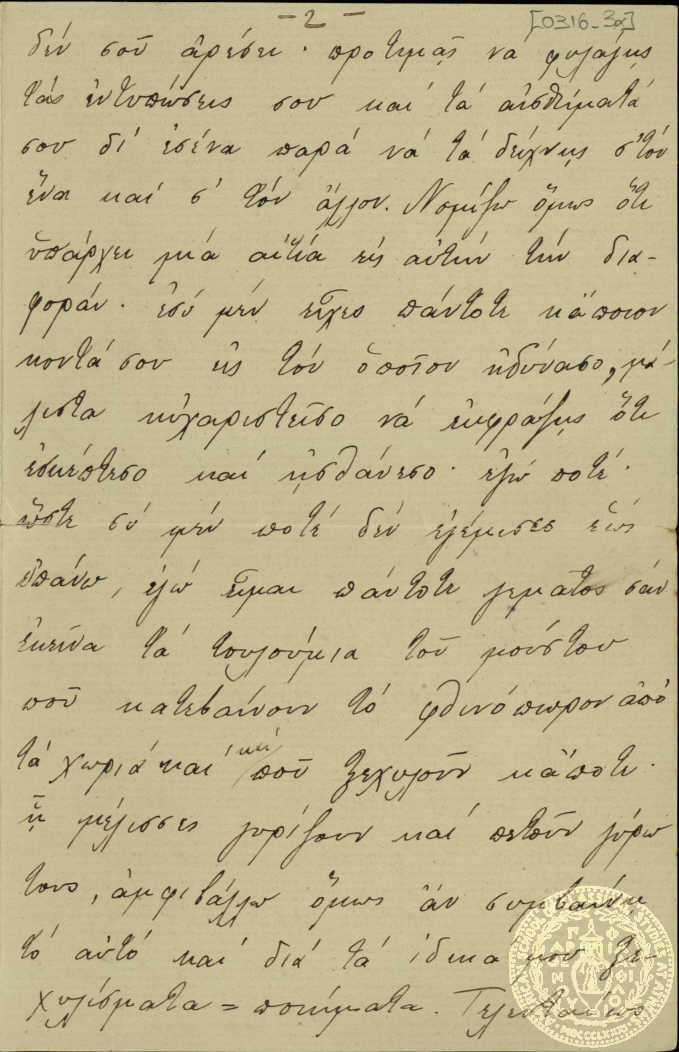 - 2 -
[0316-3α]
δέν σοῦ ἀρέσει· προτιμᾷς νά φυλάγῃς
τάς ἐντυπώσεις σου καί τά αἰσθήματά
σου δι' ἐσένα παρά νά τά δείχνῃς σ' τόν
ἕνα καί σ' τόν ἄλλον. Νομίζω ὅμως ὅτι
ὑπάρχει μιά αἰτία εἰς αὐτήν τήν δια-
φοράν· ἐσύ μέν εἶχες πάντοτε κἄποιον
κοντά σου εἰς τόν ὁποῖον ἠδύνασο, μά-
λιστα ηὐχαριστεῖσο νά ἐκφράζῃς ὅτι
ἐσκέπτεσο καί ᾐσθάνεσο· ἐγώ ποτέ·
ὥστε σύ μέν ποτέ δέν ἐγέμισες ἕως
ἐπάνω, ἐγώ εἶμαι πάντοτε γεμάτος σάν
ἐκεῖνα τά τουλούμια τοῦ μούστου
ποῦ κατεβαίνουν τό φθινόπωρον ἀπό
τά χωριά καί ποῦ ξεχυλοῦν κἄποτε·
ᾑ μέλισσες γυρίζουν καί πετοῦν γύρω
τους, ἀμφιβάλλω ὅμως ἄν συμβαίνῃ
τό αὐτό καί διά τά ἰδικά μου ξε-
χυλίσματα = ποιήματα. Τελευταίως